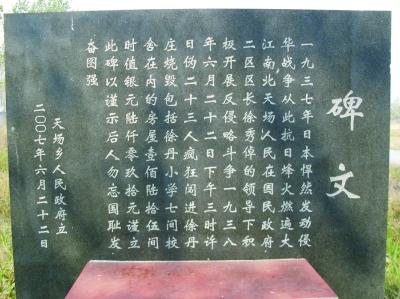 碑文
一九三七年日本悍然发动侵
华战争从此抗日烽火燃遍大
江南北天场人民在国民政府
二区区长徐秀倬的领导下积
极开展反侵略斗争一九三八
年六月二十二日下午三时许
日伪二十三人疯狂闯进徐丹
庄烧毁包括徐丹小学七间校
舍在内的房屋壹佰陆拾伍间
时值银元陆仟零玖拾元谨立
此碑以谨示后人勿忘国耻发
奋图强
天场乡人民政府立
二〇〇七年六月二十二日